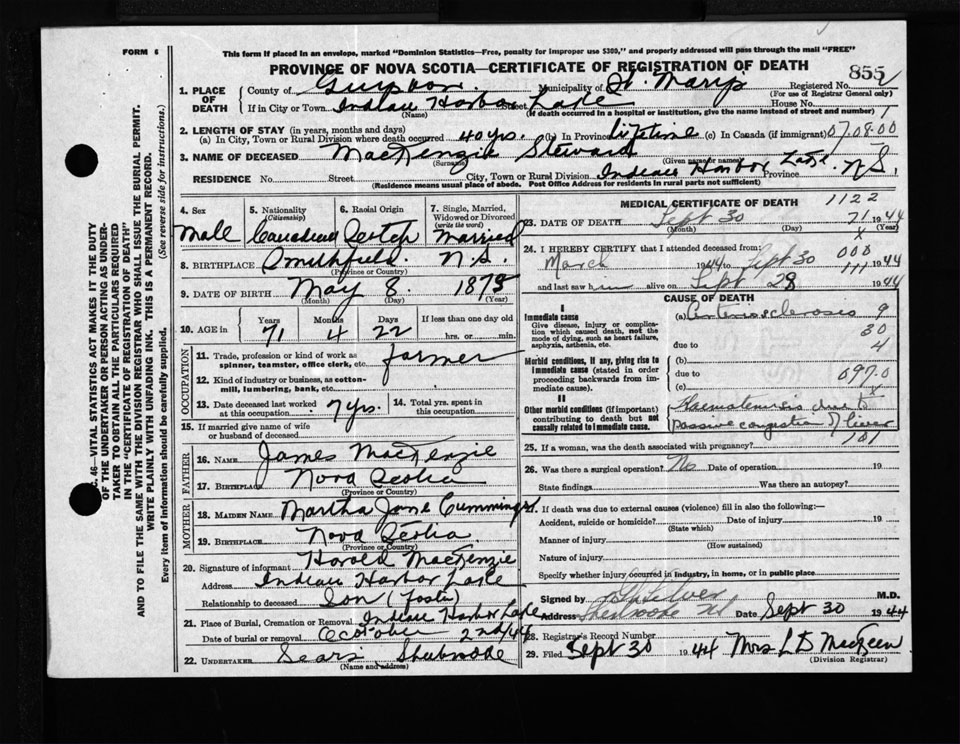 FORM 6
This form if placed in an envelope, marked "Dominion Statistics—Free, penalty for improper use $300," and properly addressed will pass through the mail "FREE"
PROVINCE OF NOVA SCOTIA—CERTIFICATE OF REGISTRATION OF DEATH
855
Registered No.
(For use of Registrar General only)
1. PLACE OF DEATH
County of Guysboro Municipality of St. Marys
If in City or Town Indian Harbor Lake Street House No.
(Name) (If death occurred in a hospital or institution, give the name instead of street and number)
2. LENGTH OF STAY (in years, months and days)
(a) In City, Town or Rural Division where death occurred 40 yrs. (b) In Province Lifetime (c) In Canada (if immigrant) 07.08.00
3. NAME OF DECEASED MacKenzie Steward
(Surname) (Given name or names)
RESIDENCE No. Street City, Town or Rural Division Indian Harbor Lake Province N.S.
(Residence means usual place of abode. Post Office Address for residents in rural parts not sufficient)
4. Sex
Male
5. Nationality (Citizenship)
Canadian
6. Racial Origin
Scotch
7. Single, Married, Widowed or Divorced (write the word)
Married
8. BIRTHPLACE Smithfield. N.S.
(Province or Country)
9. DATE OF BIRTH May 8. 1873
(Month) (Day) (Year)
10. AGE in Years Months Days If less than one day old
71 4 22 hrs. or min.
OCCUPATION
11. Trade, profession or kind of work as spinner, teamster, office clerk, etc. farmer
12. Kind of industry or business, as cotton-mill, lumbering, bank, etc.
13. Date deceased last worked at this occupation. 7 yrs.
14. Total yrs. spent in this occupation.
15. If married give name of wife or husband of deceased
FATHER
16. NAME James MacKenzie
17. BIRTHPLACE Nova Scotia
(Province or Country)
MOTHER
18. MAIDEN NAME Martha Jane Cummings
19. BIRTHPLACE Nova Scotia
(Province or Country)
20. Signature of informant Harold MacKenzie
Address Indian Harbor Lake
Relationship to deceased Son (foster)
21. Place of Burial, Cremation or Removal Indian Harbor Lake
Date of burial or removal October 2nd/44
22. UNDERTAKER Sears Sherbrooke
(Name and address)
MEDICAL CERTIFICATE OF DEATH
1122
23. DATE OF DEATH Sept 30 71 1944
(Month) (Day) (Year)
24. I HEREBY CERTIFY that I attended deceased from:
March 1944 to Sept 30 1944
000
111
and last saw him alive on Sept 28 1944
CAUSE OF DEATH
I
Immediate cause
Give disease, injury or complication which caused death, not the mode of dying, such as heart failure, asphyxia, asthenia, etc.
(a) Arteriosclerosis 9
30
due to 4
Morbid conditions, if any, giving rise to immediate cause (stated in order proceeding backwards from immediate cause).
(b)
due to 097.0
(c)
II
Other morbid conditions (if important) contributing to death but not causally related to immediate cause.
Haematemesis due to
passive congestion of liver
25. If a woman, was the death associated with pregnancy?
26. Was there a surgical operation? No Date of operation 19
State findings Was there an autopsy?
27. If death was due to external causes (violence) fill in also the following:—
Accident, suicide or homicide? Date of injury 19
(State which)
Manner of injury
(How sustained)
Nature of injury
Specify whether injury occurred in industry, in home, or in public place
Signed by M.D.
Address Sherbrooke NS Date Sept 30 1944
28. Registrar's Record Number
29. Filed Sept 30 1944 Mrs L D MacKeen
(Division Registrar)
C. 46—VITAL STATISTICS ACT MAKES IT THE DUTY
OF THE UNDERTAKER OR PERSON ACTING AS UNDER-
TAKER TO OBTAIN ALL THE PARTICULARS REQUIRED
IN THE "CERTIFICATE OF REGISTRATION OF DEATH"
AND TO FILE THE SAME WITH THE DIVISION REGISTRAR WHO SHALL ISSUE THE BURIAL PERMIT.
WRITE PLAINLY WITH UNFADING INK. THIS IS A PERMANENT RECORD.
Every item of information should be carefully supplied. (See reverse side for instructions.)